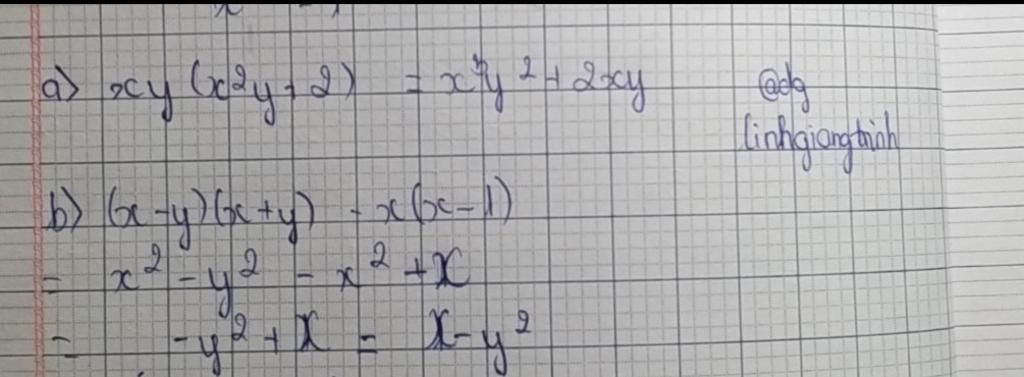 a) xy (x2y + 2) = x³y² + 2xy @dg
linhgiangtrinh
b) (x - y)(x + y) - x(x - 1)
= x² - y² - x² + x
= -y² + x = x - y²